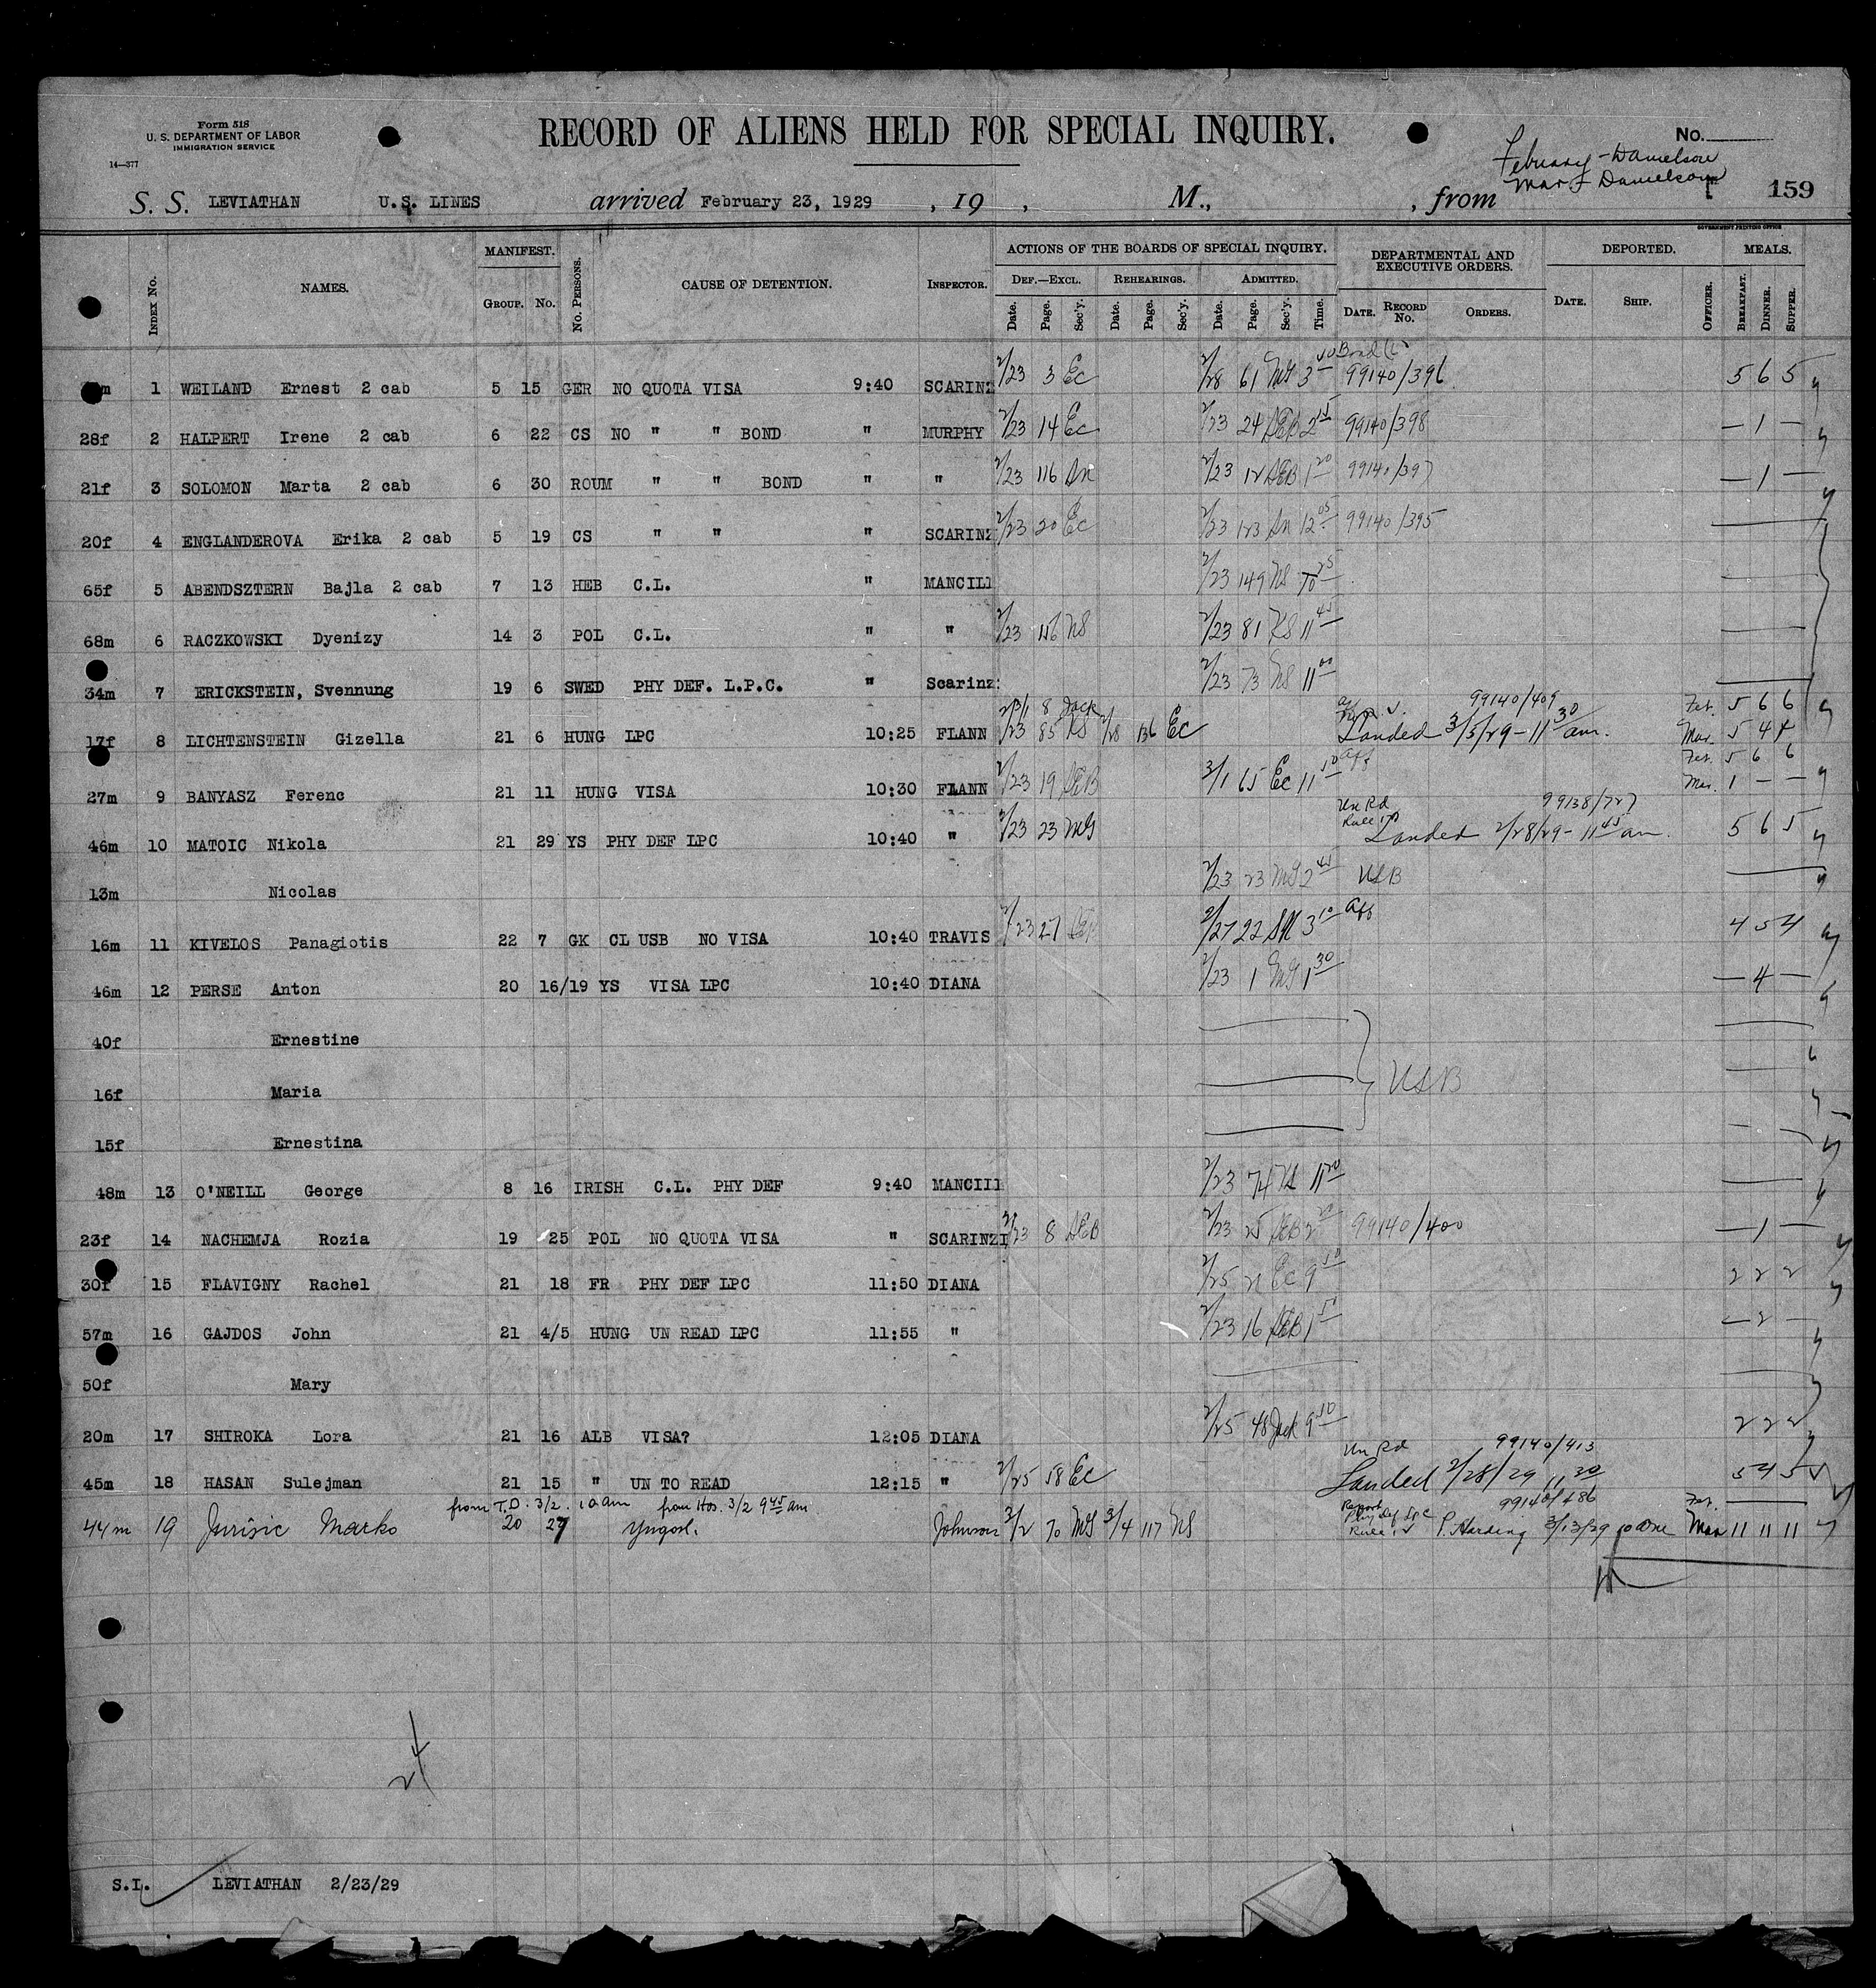 Form 518
U. S. DEPARTMENT OF LABOR
IMMIGRATION SERVICE
14—377
RECORD OF ALIENS HELD FOR SPECIAL INQUIRY.
No.
February - Danielson
Mar - Danielson
159
S. S. LEVIATHAN U.S. LINES arrived February 23, 1929 , 19 , M., , from
GOVERNMENT PRINTING OFFICE
INDEX No. NAMES. MANIFEST. GROUP. No. No. PERSONS. CAUSE OF DETENTION. INSPECTOR. ACTIONS OF THE BOARDS OF SPECIAL INQUIRY. DEF.—EXCL. Date. Page. Sec'y. REHEARINGS. Date. Page. Sec'y. ADMITTED. Date. Page. Sec'y. Time. DEPARTMENTAL AND EXECUTIVE ORDERS. DATE. RECORD No. ORDERS. DEPORTED. DATE. SHIP. OFFICER. MEALS. BREAKFAST. DINNER. SUPPER.
m 1 WEILAND Ernest 2 cab 5 15 GER NO QUOTA VISA 9:40 SCARINZ 2/23 3 Ec 2/28 61 MG 3 Bond 99140/396 5 6 5
28f 2 HALPERT Irene 2 cab 6 22 CS NO " " BOND " MURPHY 2/23 14 Ec 2/23 24 SEB 2 15 99140/398 — 1 —
21f 3 SOLOMON Marta 2 cab 6 30 ROUM " " BOND " " 2/23 116 Sn 2/23 12 SEB 1 20 99140/397 — 1 —
20f 4 ENGLANDEROVA Erika 2 cab 5 19 CS " " " SCARINZ 2/23 20 Ec 2/23 123 Sn 12 05 99140/395
65f 5 ABENDSZTERN Bajla 2 cab 7 13 HEB C.L. " MANCILL 2/23 149 NS 10 25
68m 6 RACZKOWSKI Dyenizy 14 3 POL C.L. " " 2/23 116 NS 2/23 81 KS 11 45
34m 7 ERICKSTEIN, Svennung 19 6 SWED PHY DEF. L.P.C. " Scarinz 2/23 73 NS 11 00
17f 8 LICHTENSTEIN Gizella 21 6 HUNG LPC 10:25 FLANN 8 Jack 2/23 85 KS 2/28 136 Ec 99140/409 Landed 3/5/29 - 11 30 am. Feb. 5 6 6 Mar. 5 4 4
27m 9 BANYASZ Ferenc 21 11 HUNG VISA 10:30 FLANN 2/23 19 SEB 3/1 65 Ec 11 10 Aff Feb. 5 6 6 Mar. 1 — —
46m 10 MATOIC Nikola 21 29 YS PHY DEF LPC 10:40 " 2/23 23 MG Un Rd 99138/727 Landed 2/28/29 - 11 45 am. 5 6 5
13m Nicolas 2/23 23 MG 2 45 USB
16m 11 KIVELOS Panagiotis 22 7 GK CL USB NO VISA 10:40 TRAVIS 2/23 27 SEB 2/27 22 SN 3 10 Aff 4 5 4
46m 12 PERSE Anton 20 16/19 YS VISA LPC 10:40 DIANA 2/23 1 MG 1 30 — 4 —
40f Ernestine
16f Maria USB
15f Ernestina
48m 13 O'NEILL George 8 16 IRISH C.L. PHY DEF 9:40 MANCIll 2/23 74 NS 11 20
23f 14 NACHEMJA Rozia 19 25 POL NO QUOTA VISA " SCARINZI 2/23 8 SEB 2/23 25 SEB 2 20 99140/400 — 1 —
30f 15 FLAVIGNY Rachel 21 18 FR PHY DEF LPC 11:50 DIANA 2/25 21 Ec 9 10 2 2 2
57m 16 GAJDOS John 21 4/5 HUNG UN READ LPC 11:55 " 2/23 16 SEB 1 — 2 —
50f Mary
20m 17 SHIROKA Lora 21 16 ALB VISA? 12:05 DIANA 2/25 48 Jack 9 10 2 2 2
45m 18 HASAN Sulejman 21 15 " UN TO READ 12:15 " 2/25 58 Ec Un Rd 99140/413 Landed 2/28/29 11 30 5 4 5
from T.D. 3/2. 10 am from Hos. 3/2 9 45 am
44m 19 Jurisic Marko 20 27 Yugosl. Johnson 3/2 70 MG 3/4 117 NS 99140/486 P. Harding 3/13/29 Feb. — Mar 11 11 11
24
S.I. LEVIATHAN 2/23/29